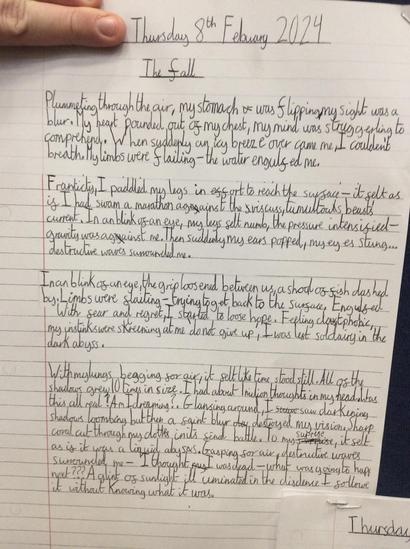 Thursday 8th Febuary 2024
The Fall
Plummeting through the air, my stomach was flipping, my sight was a
blur. My heart pounded out of my chest, my mind was struggerling to
comprehend. When suddenly an icy breeze over came me, I couldent
breath. My limbs were flailing - the water engulfed me.
Franticly, I paddled my legs in effort to reach the surface - it felt as
if I had swam a marathon against the viscuss, tumultouts beasts
current. In an blink of an eye, my legs felt numb, the pressure intensified -
gravity was against me. Then suddenly my ears popped, my eyes stung...
destructive waves surrounded me.
In an blink of an eye, the grip loosened between us, a shoal of fish dashed
by. Limbs were flailing - trying to get back to the surface, Engulfed
With fear and regret, I started to loose hope. Feeling claustphobic,
my instinks were skreeming at me do not give up, I was lost in the
dark abyss.
With my lungs begging for air, it felt like time stood still. All of thy
shadows grew 10 times in size. I had about 1 milion thoughts in my head. Was
this all real? Am I dreaming?. Glansing around, I saw dark eping
shadows looming but then a faint blur destroyed my vision, sharp
coral cut through my cloths in its final battle. To my suprise, it felt
as if it was a liquid abyss. Gasping for air, destructive waves
surrounded me - I thought I was dead - what was going to happ
next??? A glint of sunlight illuminated in the distence I follow
it without knowing what it was.
Thursday